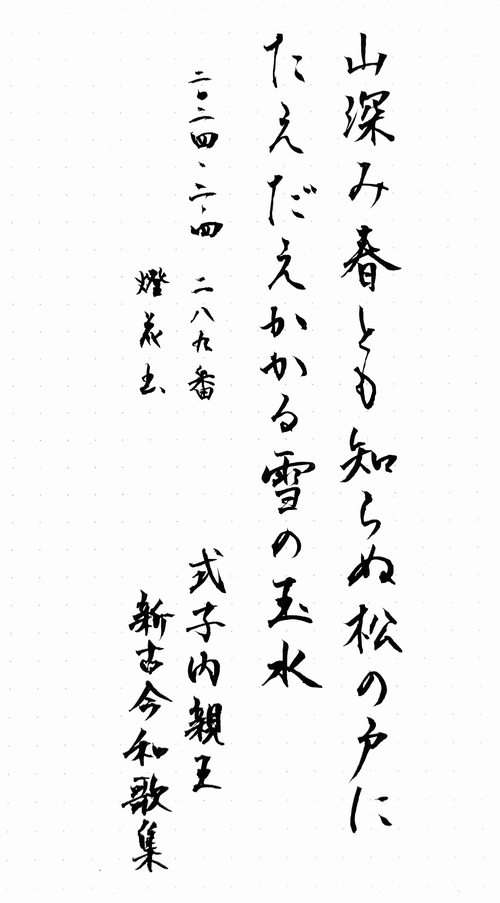 山深み春とも知らぬ松の戸に
たえだえかかる雪の玉水
二〇二四、二、四 二八九番
式子内親王
燈花
新古今和歌集